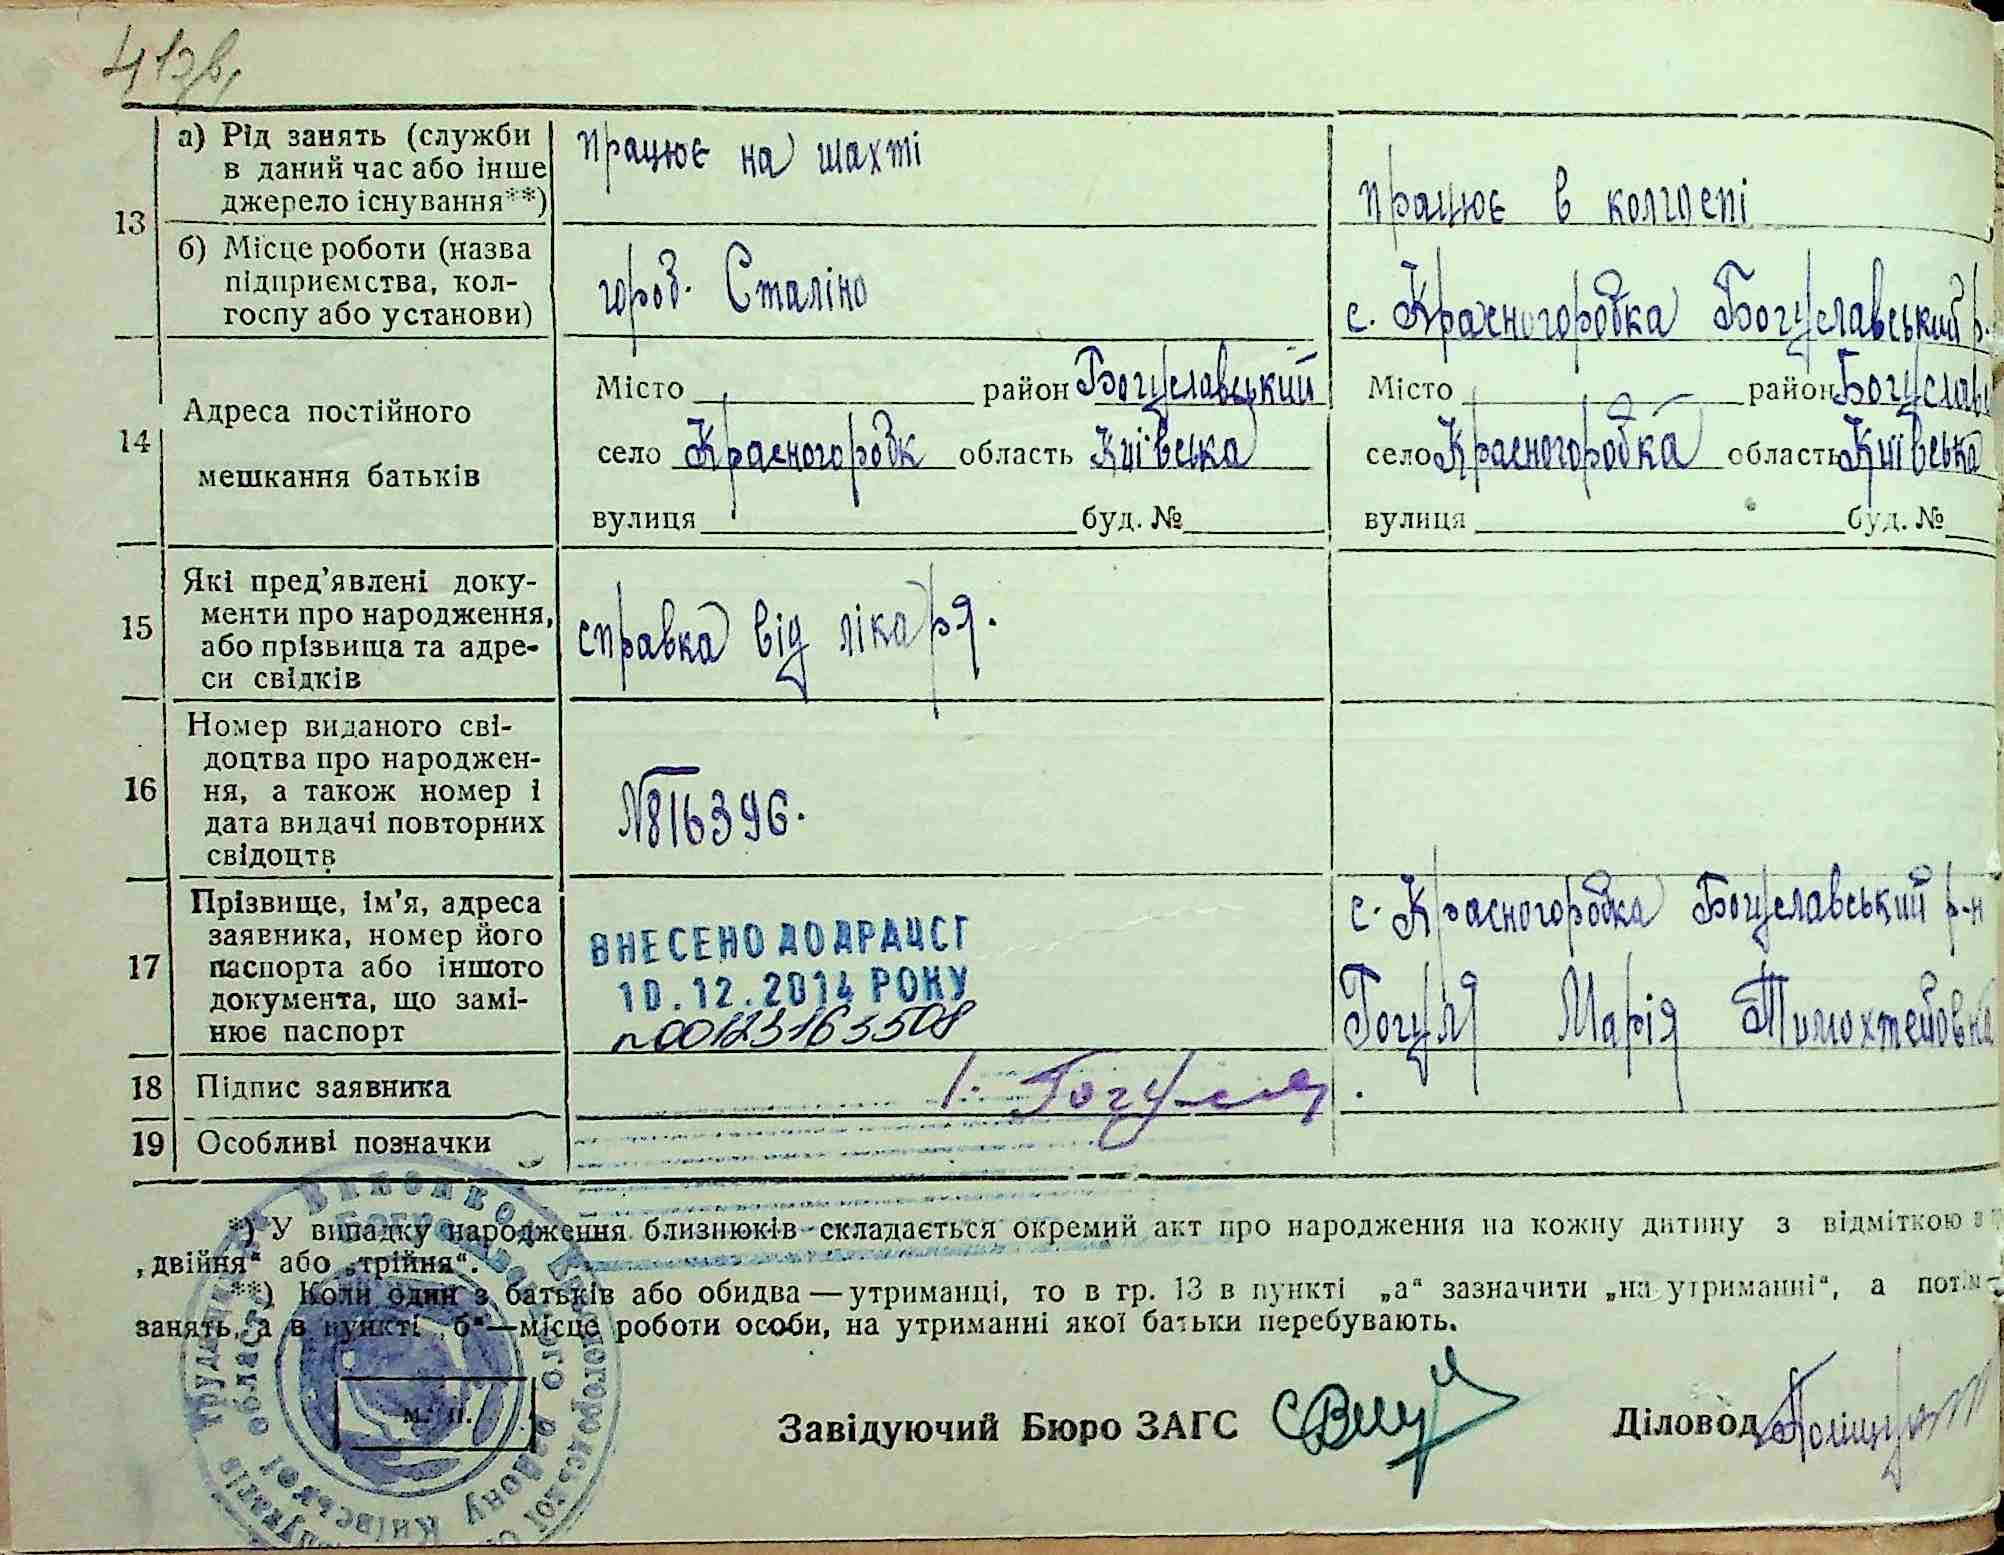 41зв
13
а) Рід занять (служби
в даний час або інше
джерело існування**)
працює на шахті
працює в колгоспі
б) Місце роботи (назва
підприємства, кол-
госпу або установи)
город. Сталіно
с. Красногородка Богуславський р.
14
Адреса постійного
мешкання батьків
Місто район Богуславський
село Красногородк область Київська
вулиця буд. №
Місто район Богуслав
село Красногородка область Київська
вулиця буд. №
15
Які пред'явлені доку-
менти про народження,
або прізвища та адре-
си свідків
справка від лікаря.
16
Номер виданого сві-
доцтва про народжен-
ня, а також номер і
дата видачі повторних
свідоцтв
№816396.
17
Прізвище, ім'я, адреса
заявника, номер його
паспорта або іншого
документа, що замі-
нює паспорт
ВНЕСЕНО ДО ДРАЦСГ
10.12.2014 РОКУ
n00123163508
с. Красногородка Богуславський р-н
Гогуля Марія Тимохтейовна
18 Підпис заявника
Гогуля
19 Особливі позначки
*) У випадку народження близнюків складається окремий акт про народження на кожну дитину з відміткою
„двійня" або „трійня".
**) Коли один з батьків або обидва — утриманці, то в гр. 13 в пункті „а" зазначити „на утриманні", а потім
занять, а в пункті „б"—місце роботи особи, на утриманні якої батьки перебувають.
м. п.
Завідуючий Бюро ЗАГС
Діловод